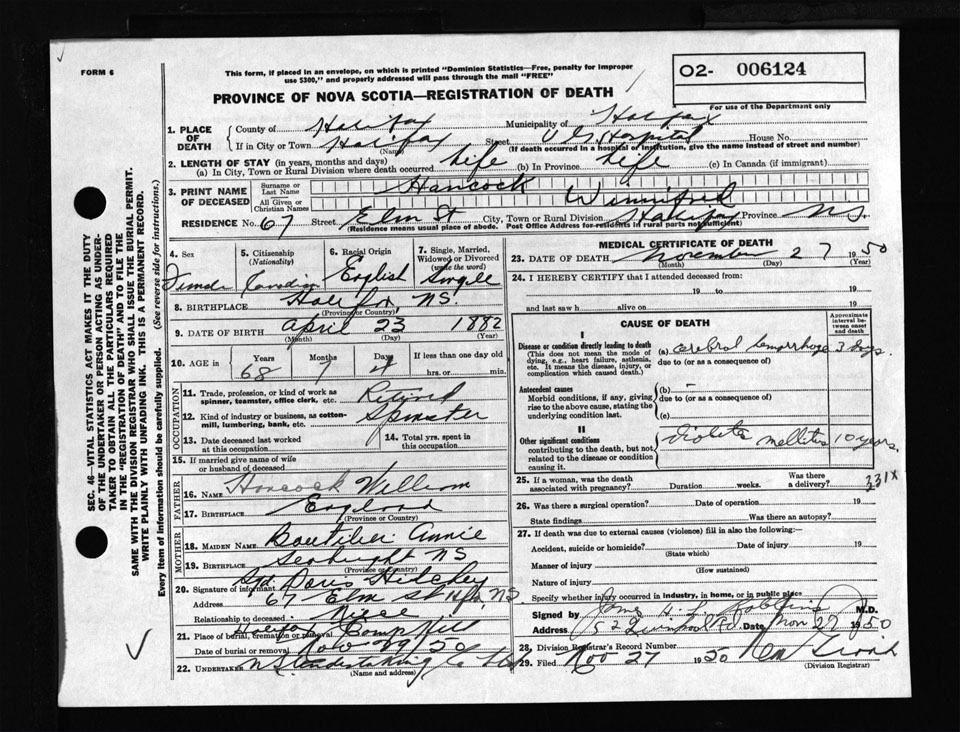 FORM 6
This form, if placed in an envelope, on which is printed "Dominion Statistics—Free, penalty for improper
use $300," and properly addressed will pass through the mail "FREE"
O2- 006124
For use of the Department only
PROVINCE OF NOVA SCOTIA—REGISTRATION OF DEATH
1. PLACE OF DEATH
County of Halifax Municipality of Halifax
If in City or Town Halifax Street V G Hospital House No.
(Name) (If death occurred in a hospital or institution, give the name instead of street and number)
2. LENGTH OF STAY (in years, months and days)
(a) In City, Town or Rural Division where death occurred Life (b) In Province Life (c) In Canada (if immigrant)
3. PRINT NAME OF DECEASED
Surname or Last Name Hancock
All Given or Christian Names Winnifred
RESIDENCE No. 67 Street Elm St City, Town or Rural Division Halifax Province N.S.
(Residence means usual place of abode. Post Office Address for residents in rural parts not sufficient)
4. Sex
5. Citizenship (Nationality)
6. Racial Origin
7. Single, Married, Widowed or Divorced (write the word)
Female Canadian English Single
8. BIRTHPLACE Halifax NS.
(Province or Country)
9. DATE OF BIRTH April 23 1882
(Month) (Day) (Year)
10. AGE in Years Months Days If less than one day old
68 7 4 hrs. or min.
OCCUPATION
11. Trade, profession, or kind of work as spinner, teamster, office clerk, etc. Retired
12. Kind of industry or business, as cotton-mill, lumbering, bank, etc. Spinster
13. Date deceased last worked at this occupation
14. Total yrs. spent in this occupation
15. If married give name of wife or husband of deceased
FATHER
16. NAME Hancock William
17. BIRTHPLACE England
(Province or Country)
MOTHER
18. MAIDEN NAME Boutilier Annie
19. BIRTHPLACE Seabright NS
(Province or Country)
20. Signature of informant Sgd. Doris Hitchey
Address 67 Elm St Hfx, NS.
Relationship to deceased Niece
21. Place of burial, cremation or removal Camp Hill
Date of burial or removal Nov 29/50
22. UNDERTAKER N S Undertaking Co Ltd
(Name and address)
MEDICAL CERTIFICATE OF DEATH
23. DATE OF DEATH November 27 1950
(Month) (Day) (Year)
24. I HEREBY CERTIFY that I attended deceased from:
19 to 19
and last saw h alive on 19
CAUSE OF DEATH
Approximate interval between onset and death
I
Disease or condition directly leading to death
(This does not mean the mode of dying, e.g., heart failure, asthenia, etc. It means the disease, injury, or complication which caused death.)
(a) Cerebral hemorrhage 3 days.
due to (or as a consequence of)
Antecedent causes
Morbid conditions, if any, giving rise to the above cause, stating the underlying condition last.
(b) –
due to (or as a consequence of)
(c)
II
Other significant conditions
contributing to the death, but not related to the disease or condition causing it.
Diabetes mellitis 10 years.
25. If a woman, was the death associated with pregnancy? Duration weeks. Was there a delivery?
331X
26. Was there a surgical operation? Date of operation 19
State findings Was there an autopsy?
27. If death was due to external causes (violence) fill in also the following:—
Accident, suicide or homicide? Date of injury 19
(State which)
Manner of injury
(How sustained)
Nature of injury
Specify whether injury occurred in industry, in home, or in public place
Signed by James H. L. Robbins M.D.
Address Quinpool Rd. Date Nov 27 1950
28. Division Registrar's Record Number
29. Filed Nov 27 1950
(Division Registrar)
SEC. 46—VITAL STATISTICS ACT MAKES IT THE DUTY
OF THE UNDERTAKER OR PERSON ACTING AS UNDER-
TAKER TO OBTAIN ALL THE PARTICULARS REQUIRED
IN THE "REGISTRATION OF DEATH" AND TO FILE THE
SAME WITH THE DIVISION REGISTRAR WHO SHALL ISSUE THE BURIAL PERMIT.
WRITE PLAINLY WITH UNFADING INK. THIS IS A PERMANENT RECORD.
Every item of information should be carefully supplied. (See reverse side for instructions.)